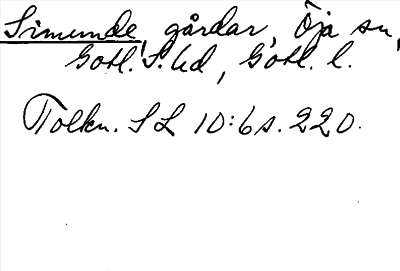 Simunde, gårdar, Öja sn,
Gotl. S. hd, Gotl. l.
Tolkn. SL 10:6 s. 220.